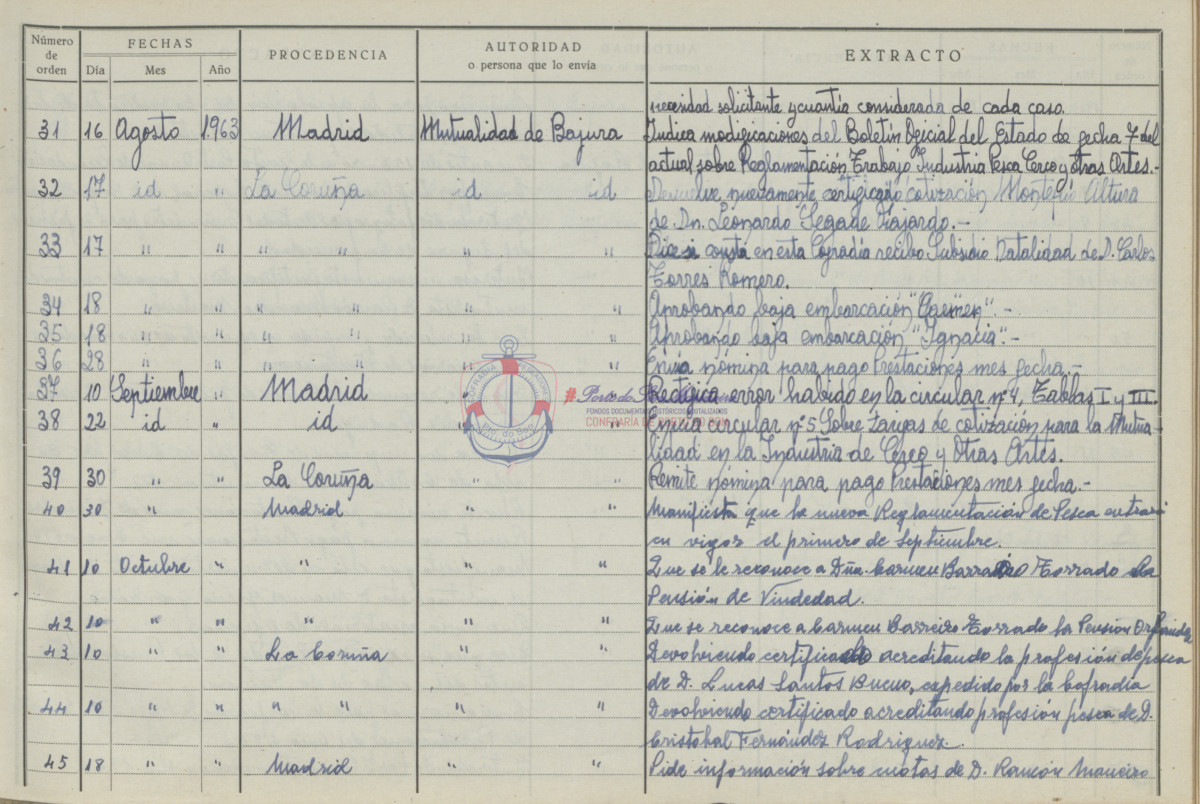 Número de orden FECHAS Día Mes Año PROCEDENCIA AUTORIDAD o persona que lo envía EXTRACTO
necesidad solicitante y cuantía considerada de cada caso.
31 16 Agosto 1.963 Madrid Mutualidad de Bajura Indica modificaciones del Boletín Oficial del Estado de fecha 7 del
actual sobre Reglamentación Trabajo Industria Pesca Cerco y otras Artes.-
32 17 id " La Coruña id id Devuelve nuevamente certificado cotización Montepío Altura
de Dn. Leonardo Segade Fajardo.-
33 17 " " " " " " Dice si consta en esta Cofradía recibo Subsidio Natalidad de D. Carlos
Torres Romero.
34 18 " " " " " " Aprobando baja embarcación "Carmen".-
35 18 " " " " " " Aprobando baja embarcación "Ignacia".-
36 28 " " " " " " Envía nómina para pago Prestaciones mes fecha.-
37 10 Septiembre " Madrid " Rectifica error habido en la circular nº 4, Tablas I y III.
38 22 id " id " Envía circular nº 5 Sobre Zargas de cotización para la Mutua-
lidad en la Industria de Cerco y Otras Artes.
39 30 " " La Coruña " " Remite nómina para pago Prestaciones mes fecha.-
40 30 " " Madrid " " Manifiesta que la nueva Reglamentación de Pesca entrará
en vigor el primero de Septiembre.
41 10 Octubre " " " " Que se le reconoce a Dña. Carmen Barreiro Torrado la
Pensión de Viudedad.
42 10 " " " " " Que se reconoce a Carmen Barreiro Torrado la Pensión Orfandad
43 10 " " La Coruña " " Devolviendo certificado acreditando la profesión de pesca
de D. Lucas Santos Bueno, expedido por la Cofradía
44 10 " " " " " " Devolviendo certificado acreditando profesión pesca de D.
Cristobal Fernández Rodriguez.
45 18 " " Madrid " " Pide información sobre cuotas de D. Ramón Maneiro
FONDOS DOCUMENTAIS HISTÓRICOS DIXITALIZADOS
CONFRARÍA DE